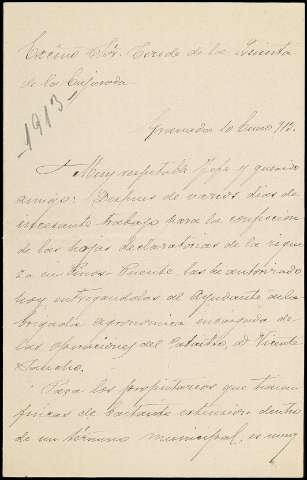 Excmo Sór. Conde de la Quinta
de la Enjarada
-1913-
Granada 10 Enero 913.
Muy respetable Jefe y querido
amigo: Despues de varios dias de
incesante trabajo para la confeccion
de las hojas declaratorias de la rique
za en Pinos Puente, las he autorizado
hoy entregandolas al Ayudante de la
brigada agronomica encargada de
las operaciones del Catastro, D. Vicente
Para los propietarios que tienen
fincas de bastante extension dentro
de un término municipal, es muy